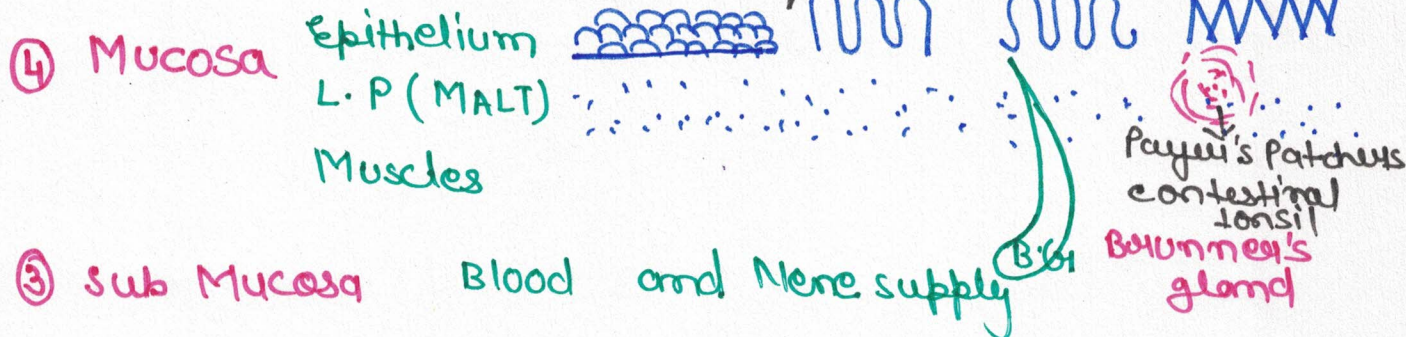 ④ Mucosa
Epithelium
L.P (MALT)
Muscles
Payer's Patchers
contestinal
tonsil
③ Sub Mucosa Blood and Nerve supply
B.G
Brunner's
gland